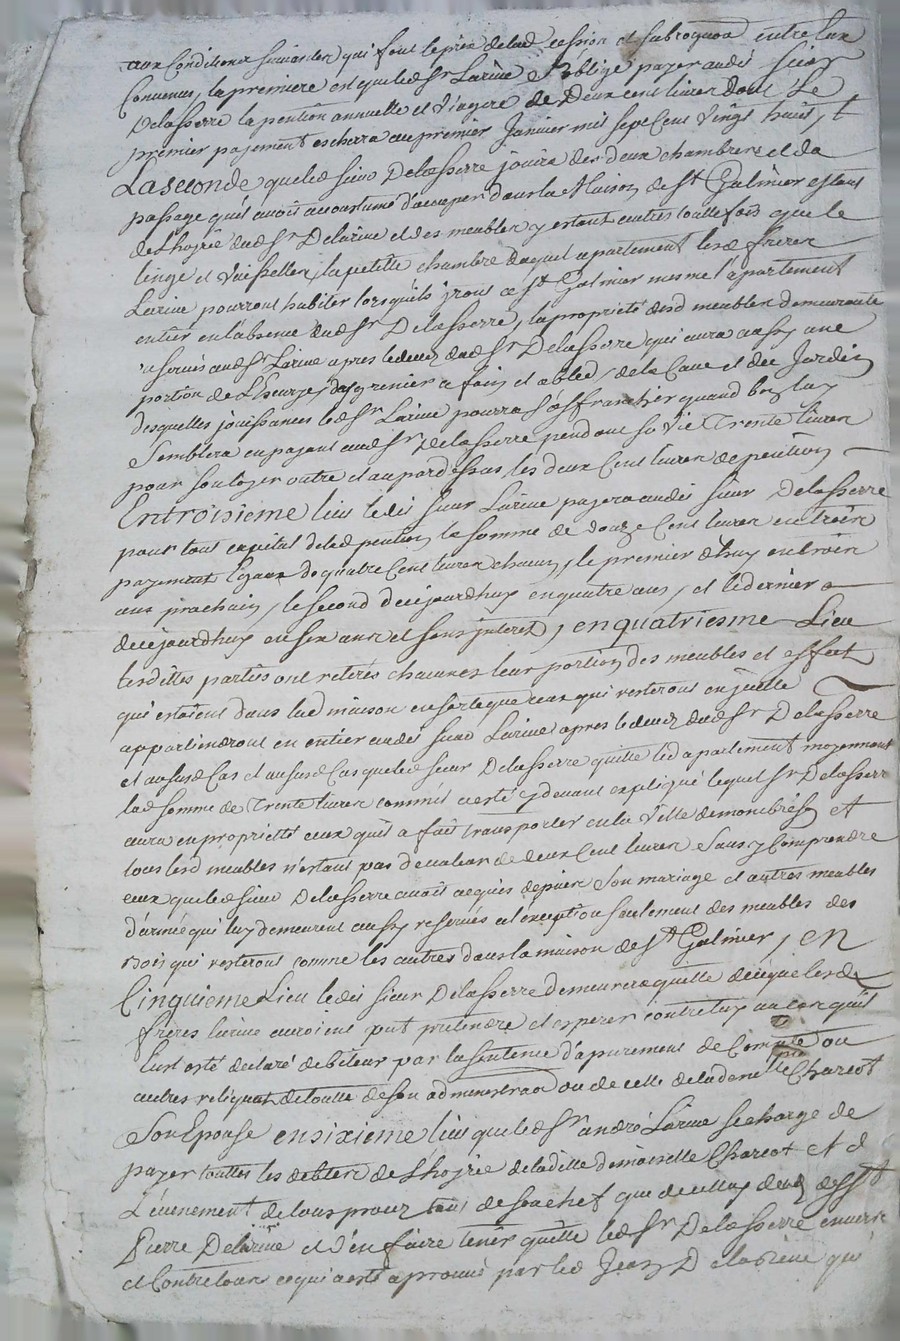 aux Conditions suivantes qui font le prix de lad cession et subrogaon entre eux
Convenu, la premiere est que led Sr Larive s'oblige payer audit sieur
Delasserre la pention annuelle et viagere de Deux cent livres dont Le
premier payement escherra au premier Janvier mil sept Cent vingt huit, et
La seconde que led sieur Delasserre jouira des deux chambres et du
passage qu'il avoit acoustumé d'acouper dans la Maison de St Galmier estant
de L'hoyrie dud Sr Delarive et des meubles y estants autres touttefois que le
linge et Vaisselles, la petitte chambre duquel apartement lesd freres
Larive pourront habiter lorsquils jront a St Galmier mesme l'apartement
entier en l'absence dud Sr Delasserre, la proprieté desd meubles demeurante
reservée aud Sr Larive apres le deces dud Sr Delasserre qui aura aussy une
portion de L'heurye, du grenier a foin et a bled, de la Cave et du Jardin
desquelles jouissances led Sr Larive pourra s'affranchir quand bon luy
Semblera en payant aud Sr Delasserre pendant sa vie Trente livres
pour son loyer outre et au pardessus les deux Cent livres de pention
En troisieme lieu ledit sieur Larive payera audit sieur Delasserre
pour tout capital de lad pention la somme de douze Cent livres en trois
payement Egaux de quatre Cent livres chacun, le premier d'huy en trois
ans prochain, le second de cejourdhuy en quatre ans, et le dernier
de cejourdhuy en six ans et sans jnterest, en quatriesme Lieu
lesdittes parties ont retirés chacunes leur portion des meubles et effect
qui estoient dans lad maison en sorte que ceux qui resteront en jcelle
appartiendront en entier audit sieur Larive apres le deces dud Sr Delasserre
et audusd Cas et audusd Cas que led sieur Delasserre quitte led apartement moyennant
lad somme de Trente livres comm'il a esté cy devant expliqué lequel Sr Delasserre
aura en proprietté ceux qu'il a fait transporter en la Ville de monbrison et
tous lesd meubles n'estant pas de valeur de deux Cent livres Sans y Comprendre
ceux que led sieur Delasserre avoit acquis depuis Son mariage et autres meubles
d'armée qui luy demeurent aussy reservés a l'exception seulement des meubles de
bois qui resteront comme les autres dans la maison de St Galmier, en
Cinquieme Lieu ledit sieur Delasserre demeurera quitte de ce que lesd
freres larive auroient put pretendre et esperer contre luy au cas qu'il
eust esté declaré debiteur par la sentence d'apurement de Compte ou
autres reliquat de toutte de son administraon ou de celle de la demlle Charcot
Son Epouse en sixieme lieu que led Sr andré Larive se charge de
payer touttes les debtes de L'hoyrie de laditte demoiselle Charcot et d
L'evenement de tous procez tant de son chef que de celluy dud deft Sr
Pierre Delarive et d'en faire tenir quitte led Sr Delasserre envers
et Contre tous ce qui a esté aprouvé par led Jean Delarive qui